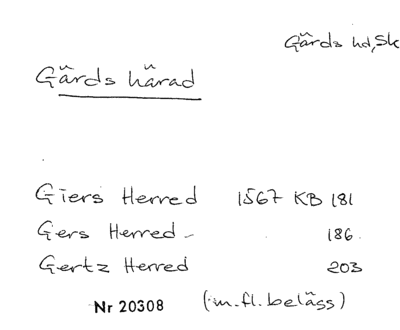 Gärds hd, Sk
Gärds härad
Giers Herred 1567 KB 181
Gers Herred - 186
Gertz Herred 203
Nr 20308 (m.fl. belägg)